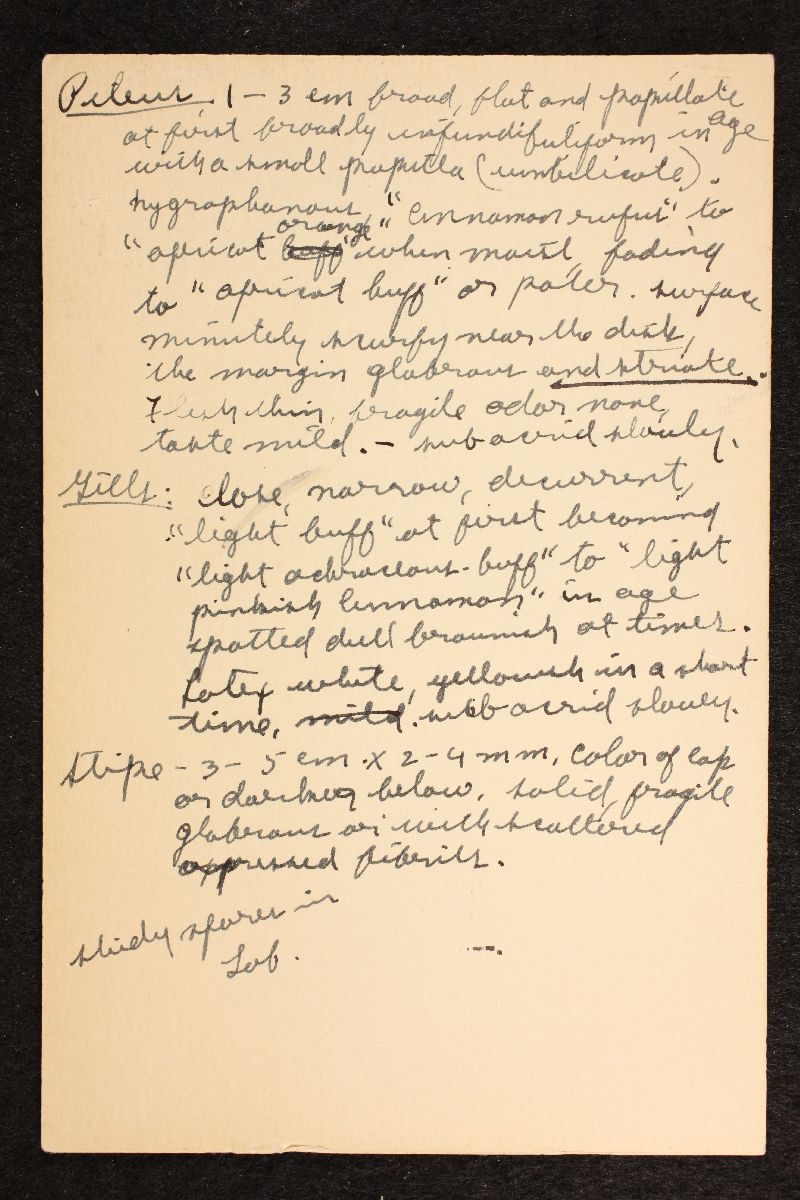 Pileus. 1 – 3 cm broad, flat and papillate
at first broadly infundifuliform in age
with a small papilla (umbilicate).
hygrophanous "cinnamon rufus" to
"apricot ~~buff~~ orange" when moist, fading
to "apricot buff" or paler. surface
minutely scurfy near the disk,
the margin glabrous and striate.
Flesh thin, fragile odor none,
taste mild. – subacrid slowly.
Gills: close, narrow, decurrent,
"light buff" at first becoming
"light ochraceous-buff" to "light
pinkish cinnamon" in age
spotted dull brownish at times.
Latex white, yellowish in a short
time, ~~mild~~. subacrid slowly.
Stipe – 3 – 5 cm. x 2 – 4 mm, color of cap
or darker below, solid, fragile
glabrous or with scattered
appressed fibrils.
study spores in
Lab. –.